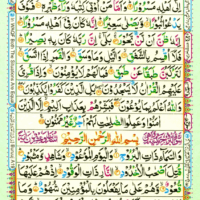 ثُبُوْرًا وَّيَصْلٰى سَعِيْرًا اِنَّهٗ كَانَ فِيْۤ اَهْلِهٖ مَسْرُوْرًا
اِنَّهٗ ظَنَّ اَنْ لَّنْ يَّحُوْرَ بَلٰۤى اِنَّ رَبَّهٗ كَانَ بِهٖ بَصِيْرًا
فَلَاۤ اُقْسِمُ بِالشَّفَقِ وَالَّيْلِ وَمَا وَسَقَ وَالْقَمَرِ اِذَا اتَّسَقَ
لَتَرْكَبُنَّ طَبَقًا عَنْ طَبَقٍ فَمَا لَهُمْ لَا يُؤْمِنُوْنَ وَاِذَا قُرِئَ
عَلَيْهِمُ الْقُرْاٰنُ لَا يَسْجُدُوْنَ بَلِ الَّذِيْنَ كَفَرُوْا يُكَذِّبُوْنَ
وَاللّٰهُ اَعْلَمُ بِمَا يُوْعُوْنَ فَبَشِّرْهُمْ بِعَذَابٍ اَلِيْمٍ اِلَّا الَّذِيْنَ
اٰمَنُوْا وَعَمِلُوا الصّٰلِحٰتِ لَهُمْ اَجْرٌ غَيْرُ مَمْنُوْنٍ
بِسْمِ اللّٰهِ الرَّحْمٰنِ الرَّحِيْمِ
وَالسَّمَآءِ ذَاتِ الْبُرُوْجِ وَالْيَوْمِ الْمَوْعُوْدِ وَشَاهِدٍ وَّمَشْهُوْدٍ
قُتِلَ اَصْحٰبُ الْاُخْدُوْدِ النَّارِ ذَاتِ الْوَقُوْدِ اِذْ هُمْ عَلَيْهَا
قُعُوْدٌ وَّهُمْ عَلٰى مَا يَفْعَلُوْنَ بِالْمُؤْمِنِيْنَ شُهُوْدٌ